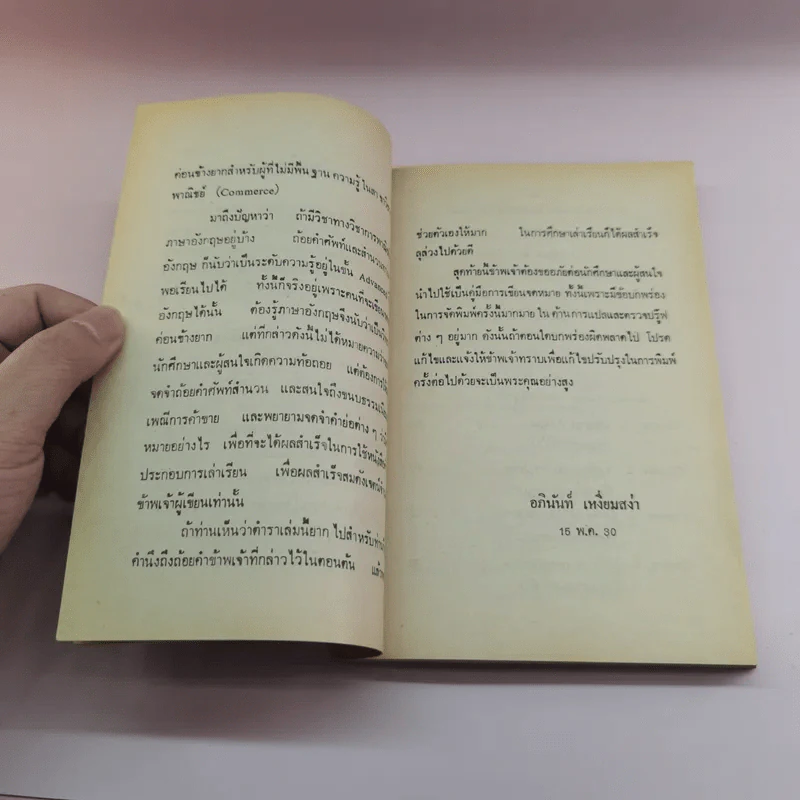 ค่อนข้างยากสำหรับผู้ที่ไม่มีพื้นฐาน ความรู้ ในสา
พาณิชย์ (Commerce)
มาถึงปัญหาว่า ถ้ามีวิชาทางวิชาการ
ภาษาอังกฤษอยู่บ้าง ถ้อยคำศัพท์และสำนวน
อังกฤษ ก็นับว่าเป็นระดับความรู้อยู่ในขั้น Advance
พอเรียนไปได้ ทั้งนี้ก็จริงอยู่เพราะคนที่จะเขียน
อังกฤษได้นั้น ต้องรู้ภาษาอังกฤษจึงนับว่าเป็น
ค่อนข้างยาก แต่ที่กล่าวดังนี้ไม่ได้หมายความว่า
นักศึกษาและผู้สนใจเกิดความท้อถอย แต่ต้องการ
จดจำถ้อยคำศัพท์สำนวน และสนใจถึงขนบธรรมเนียม
เพณีการค้าขาย และพยายามจดจำคำย่อต่าง ๆ ว่า
หมายอย่างไร เพื่อที่จะได้ผลสำเร็จในการใช้หนังสือ
ประกอบการเล่าเรียน เพื่อผลสำเร็จสมดังเจตน์
ข้าพเจ้าผู้เขียนเท่านั้น
ถ้าท่านเห็นว่าตำราเล่มนี้ยาก ไปสำหรับท่าน
คำนึงถึงถ้อยคำข้าพเจ้าที่กล่าวไว้ในตอนต้น แล้ว
ช่วยตัวเองให้มาก ในการศึกษาเล่าเรียนก็ได้ผลสำเร็จ
ลุล่วงไปด้วยดี
สุดท้ายนี้ข้าพเจ้าต้องขออภัยต่อนักศึกษาและผู้สนใจ
นำไปใช้เป็นคู่มือการเขียนจดหมาย ทั้งนี้เพราะมีข้อบกพร่อง
ในการจัดพิมพ์ครั้งนี้มากมาย ใน ด้าน การแปลและตรวจปรู๊ฟ
ต่าง ๆ อยู่มาก ดังนั้นถ้าตอนใดบกพร่องผิดพลาดไป โปรด
แก้ไขและแจ้งให้ข้าพเจ้าทราบเพื่อแก้ไขปรับปรุงในการพิมพ์
ครั้งต่อไปด้วยจะเป็นพระคุณอย่างสูง
อภินันท์ เหงี่ยมสง่า
15 พ.ค. 30